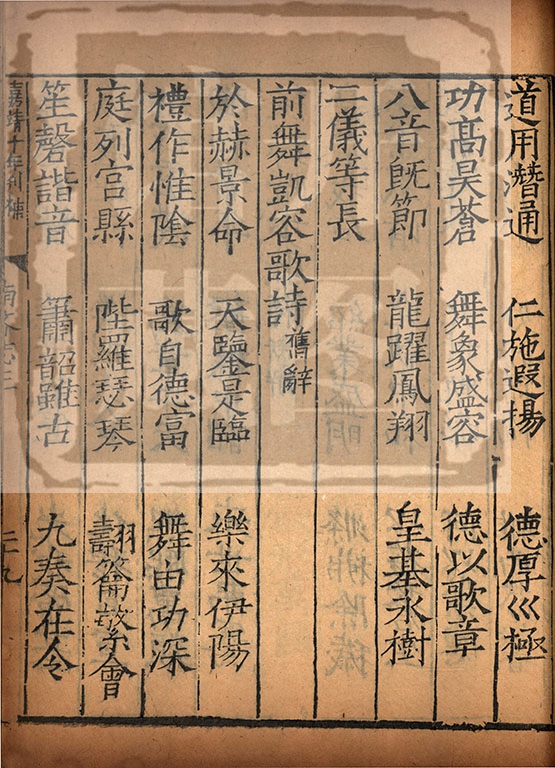 道用潛通 仁施遐揚 德厚巛極
功高昊蒼 舞象盛容 德以歌章
八音旣節 龍躍鳳翔 皇基永樹
二儀等長
前舞凱容歌詩舊辭
於赫景命 天鑒是臨 樂來伊陽
禮作惟陰 歌自德富 舞由功深
庭列宮縣 陛羅瑟琴 翿籥繁會
笙磬諧音 簫韶雖古 九奏在今
嘉靖十年刊
南齊志三
二十九